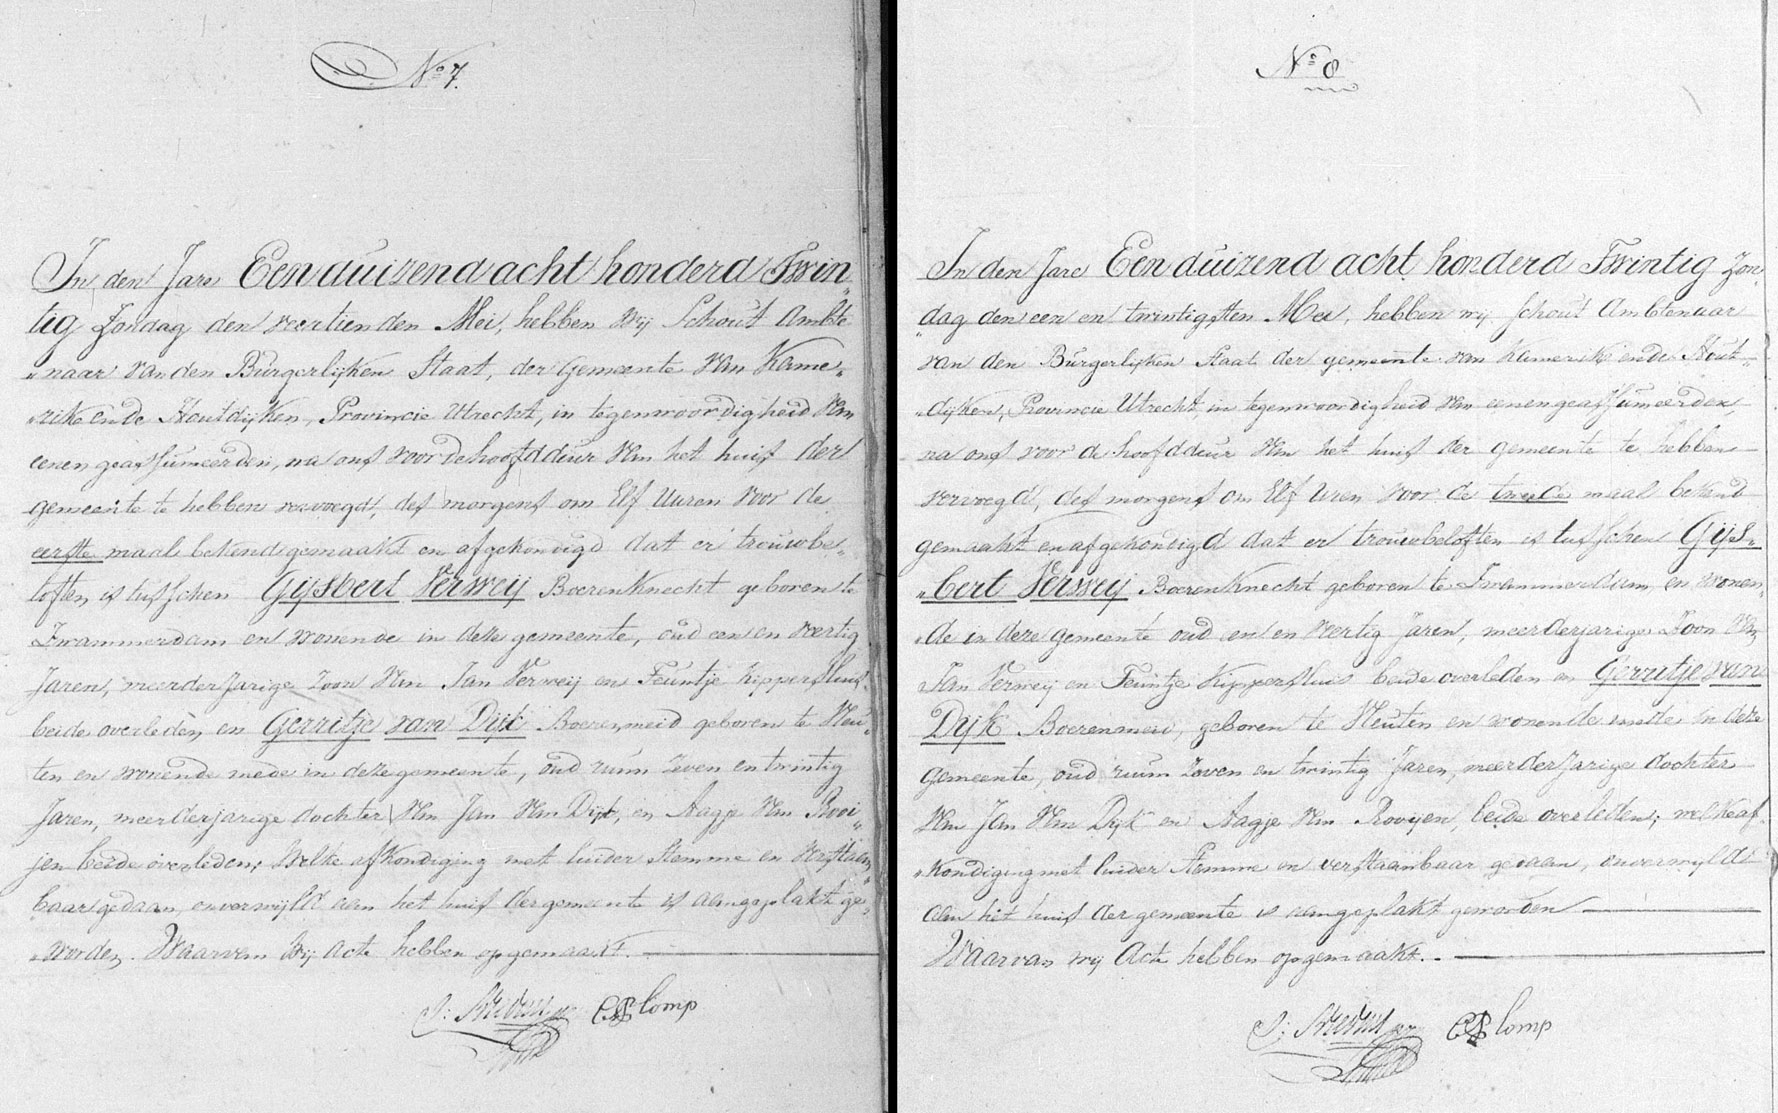 No 7.
In den Jare Een duizend acht honderd Twin„
tig Zondag den veertienden Mei, hebben Wij Schout Ambte
„naar van den Burgerlijken Staat, der Gemeente van Kame„
„rik en de Houtdijken, Provincie Utrecht, in tegenwoordigheid van
eenen geassumeerden, na ons voor de hoofddeur van het huis der
gemeente te hebben vervoegd, des morgens om Elf Uuren voor de
eerste maal bekend gemaakt en afgekondigd dat er trouwbe„
loften is tusschen Gijsbert Verweij Boerenknecht geboren te
Zwammerdam en wonende in deze gemeente, oud een en veertig
Jaren, meerderjarige Zoon van Jan Verweij en Teuntje Kippersluis
beide overleden, en Gerritje van Dijk Boerenmeid geboren te Vleu„
ten en wonende mede in deze gemeente, oud ruim Zeven en twintig
Jaren, meerderjarige dochter van Jan van Dijk, en Aagje van Rooi„
jen beide overleden; Welke afkondiging met luider stemme en verstaan„
baar gedaan, onverwijld aan het huis der gemeente is aangeplakt ge„
„worden. Waarvan Wij Acte hebben opgemaakt.
CP Clomp
No 8
In den Jare Een duizend acht honderd Twintig Zon„
„dag den een en twintigsten Mei, hebben wij Schout Ambtenaar
van den Burgerlijken Staat der gemeente van Kamerik en de Hout„
„dijken, Provincie Utrecht in tegenwoordigheid van eenen geassumeerden,
na ons voor de hoofddeur van het huis der gemeente te hebben
vervoegd, des morgens om Elf Uren voor de tweede maal bekend
gemaakt en afgekondigd dat er trouwbeloften is tusschen Gijs„
„bert Verweij Boerenknecht geboren te Zwammerdam, en wonen„
„de in deze gemeente oud een en veertig Jaren, meerderjarige Zoon van
Jan Verweij en Teuntje Kippersluis beide overleden en Gerritje van
Dijk Boerenmeid, geboren te Vleuten en wonende mede in deze
gemeente, oud ruim Zeven en twintig Jaren, meerderjarige dochter
van Jan van Dijk en Aagje van Rooijen, beide overleden; welke af„
„kondiging met luider stemme en verstaanbaar gedaan, onverwijld
aan het huis der gemeente is aangeplakt geworden
Waarvan wij Acte hebben opgemaakt.
CP Clomp